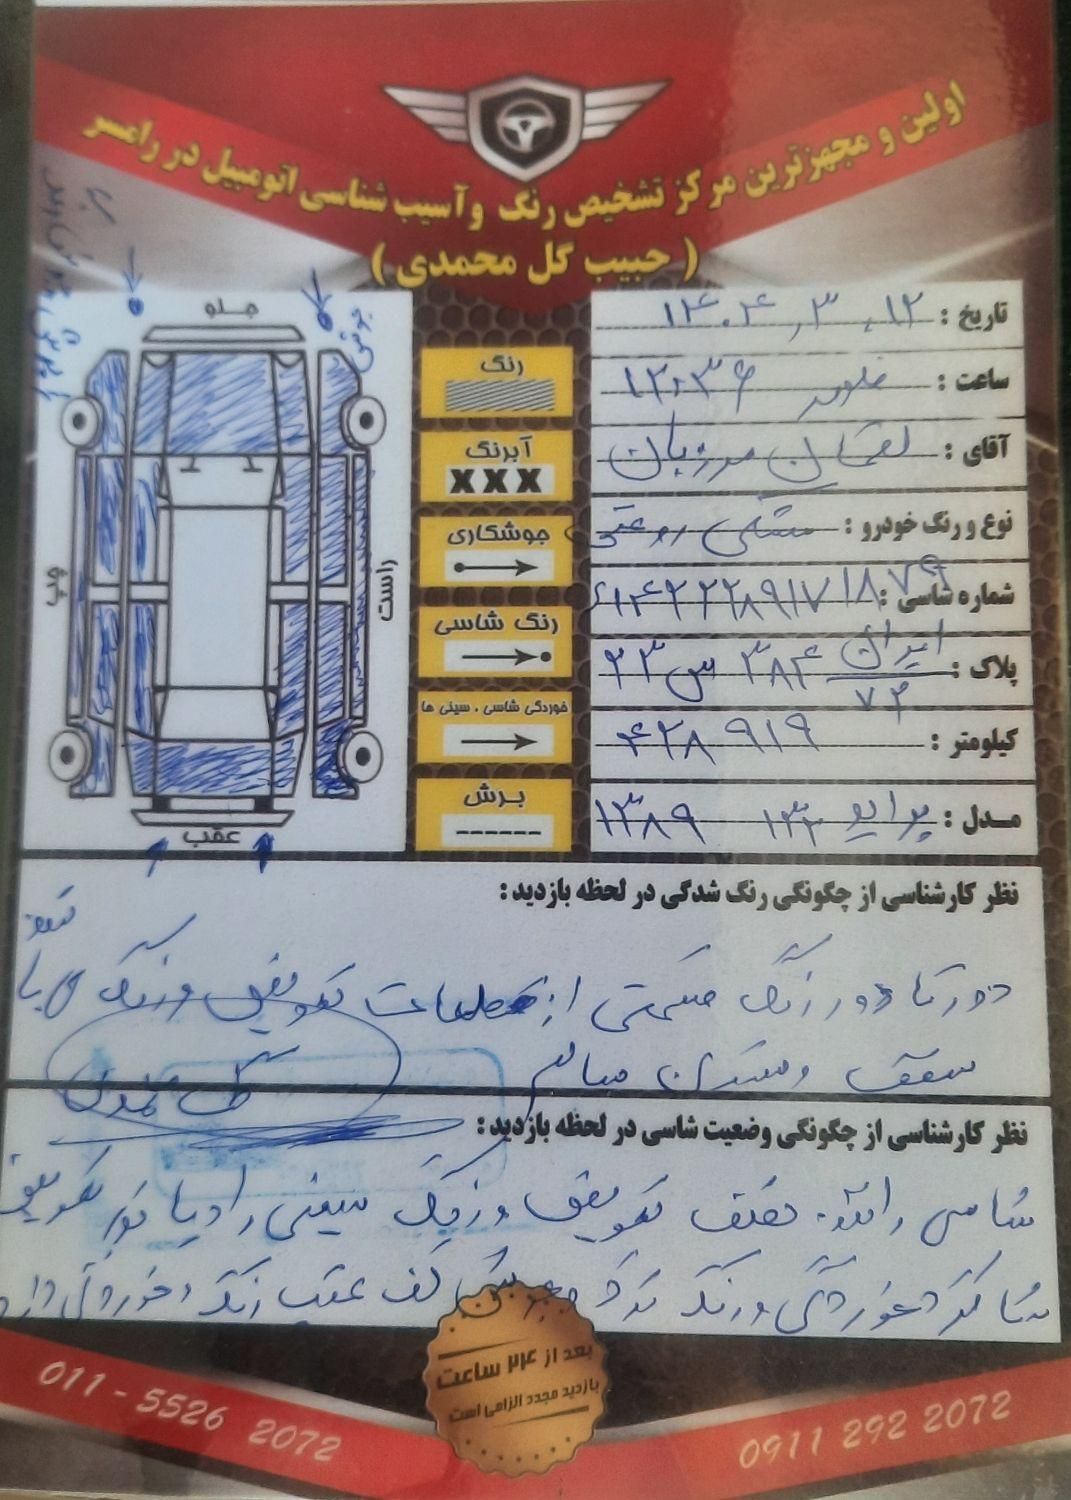 اولین و مجهزترین مرکز تشخیص رنگ و آسیب شناسی اتومبیل در رامسر
( حبیب گل محمدی )
تاریخ : ۱۴۰۴٫۳٫۱۲
ساعت : ۱۲:۳۶
آقای : لقمان مرزبان
نوع و رنگ خودرو : مشکی روغنی
شماره شاسی :
پلاک : ایران ۷۲ ۳۸۴ س ۲۳
کیلومتر : ۴۲۸۹۱۹
مدل : پراید ۱۳۲ ۱۳۸۹
رنگ
آبرنگ
XXX
جوشکاری
رنگ شاسی
خوردگی شاسی ، سینی ها
برش
جلو
جوش
چپ
راست
عقب
نظر کارشناسی از چگونگی رنگ شدگی در لحظه بازدید :
دور تا دور رنگ قسمتی از قطعات تعویض و رنگ
سقف و ستون سالم
نظر کارشناسی از چگونگی وضعیت شاسی در لحظه بازدید :
شاسی راننده تعویض و رنگ سینی رادیاتور تعویض
شاگرد خوردگی و رنگ کف عقب رنگ و خوردگی دارد
بعد از ۲۴ ساعت
بازدید مجدد الزامی است
011 - 5526 2072
0911 292 2072